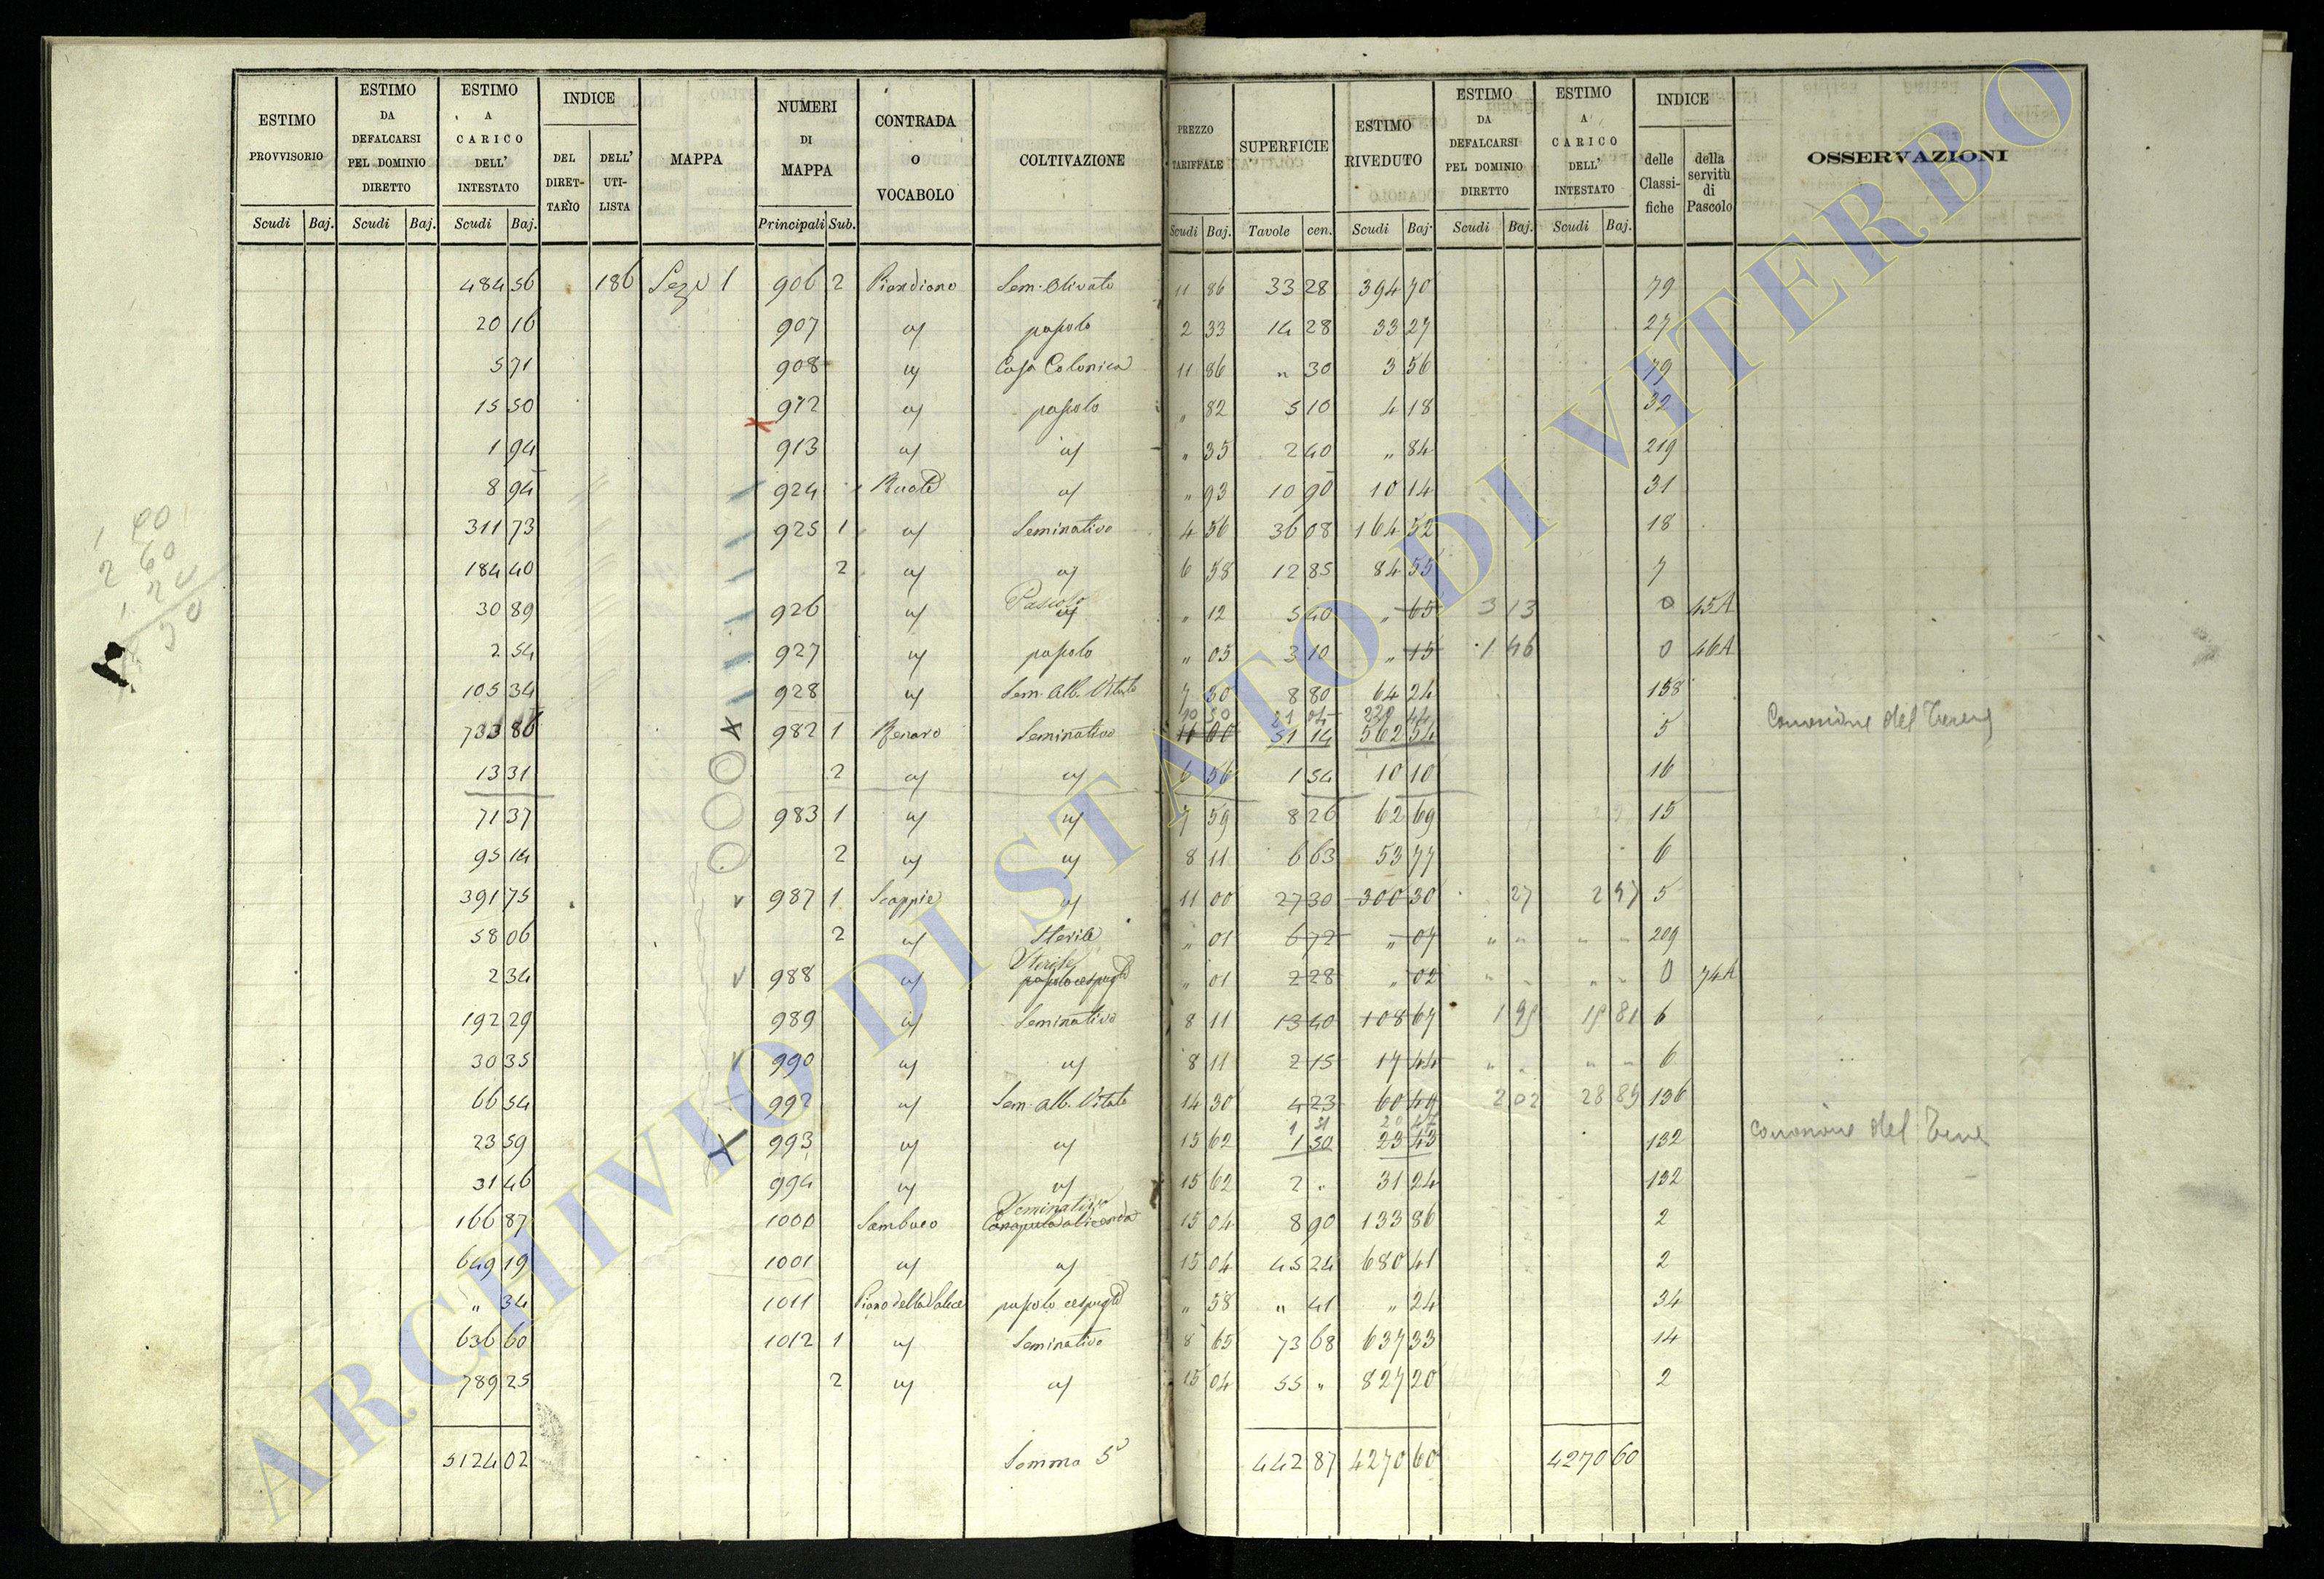 ESTIMO PROVVISORIO | ESTIMO DA DEFALCARSI PEL DOMINIO DIRETTO | ESTIMO A CARICO DELL' INTESTATO | INDICE DEL DIRETTARIO | DELL' UTILISTA | MAPPA | NUMERI DI MAPPA | CONTRADA O VOCABOLO | COLTIVAZIONE | PREZZO TARIFFALE | SUPERFICIE | ESTIMO RIVEDUTO | ESTIMO DA DEFALCARSI PEL DOMINIO DIRETTO | ESTIMO A CARICO DELL' INTESTATO | INDICE delle Classifiche | della servitù di Pascolo | OSSERVAZIONI
Scudi Baj. Scudi Baj. Scudi Baj. Principali Sub. Scudi Baj. Tavole cen. Scudi Baj. Scudi Baj. Scudi Baj.
484 56 186 Sez. 1 906 2 Piandiano Sem. Olivato 11 86 33 28 394 70 79
20 16 907 " pascolo 2 33 14 28 33 27 27
5 71 908 " Casa Colonica 11 86 " 30 3 56 79
15 50 912 " pascolo " 82 5 10 4 18 32
1 94 913 " " " 35 2 40 " 84 219
8 94 924 " " 93 10 90 10 14 31
311 73 925 1 " Seminativo 4 56 36 08 164 52 18
184 40 2 " " 6 58 12 85 84 55 7
30 89 926 " Pascolo " 12 5 40 " 65 3 13 0 45A
2 54 927 " pascolo " 05 3 10 " 15 1 46 0 46A
105 34 928 " Sem. Alb. Vitato 7 30 8 80 64 24 158
733 86 982 1 Renaro Seminativo 51 14 562 54 5
13 31 2 " " 6 56 1 54 10 10 16
71 37 983 1 " " 7 59 8 26 62 69 15
95 14 2 " " 8 11 6 63 53 77 6
391 75 987 1 Scappie " 11 00 27 30 300 30 27 2 97 5
58 06 2 " Sterile " 01 6 72 " 07 " " " " 209
2 34 988 " Sterile pascolo cespugto " 01 2 28 " 02 0 74A
192 29 989 " Seminativo 8 11 13 40 108 67 6
30 35 990 " " 8 11 2 15 17 44 6
66 54 992 " Sem. Alb. Vitato 14 30 4 23 60 49 2 02 28 89 136
23 59 993 " " 15 62 1 50 23 43 132
31 46 994 " " 15 62 2 " 31 24 132
166 87 1000 Sambuco Seminativo 15 04 8 90 133 86 2
649 19 1001 " " 15 04 45 24 680 41 2
" 34 1011 Piano della Salice pascolo cespugto " 58 " 41 " 24 34
636 60 1012 1 " Seminativo 8 65 73 68 637 33 14
789 25 2 " " 15 04 55 " 827 20 2
5124 02 Somma 5 442 87 4270 60 4270 60
ARCHIVIO DI STATO DI VITERBO